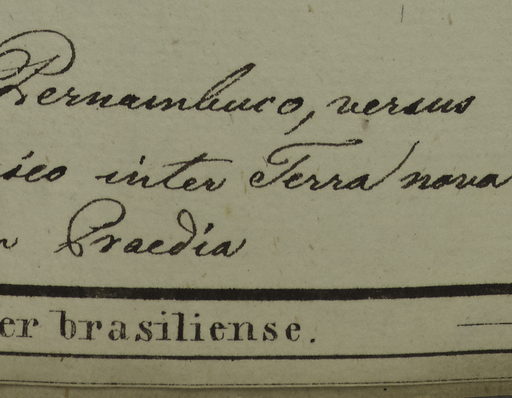 Pernambuco, versus
isco inter Terra nova
Praedia
er brasiliense.